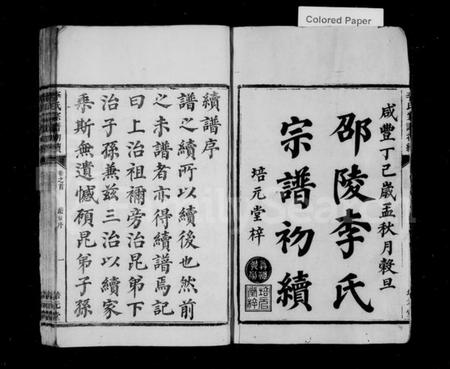 Colored Paper
咸豐丁巳歲孟秋月穀旦
邵陵李氏
宗譜初續
培元堂梓
續譜序
譜之續所以續後也然前
之未譜者亦得續譜焉記
曰上治祖禰旁治昆弟下
治子孫兼兹三治以續家
乘斯無遺憾碩昆弟子孫